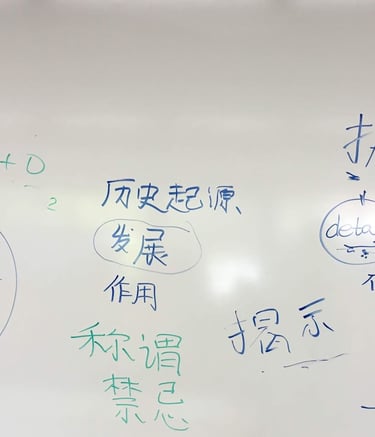 + O
2
历史起源
发展
作用
称谓
禁忌
揭示
deta